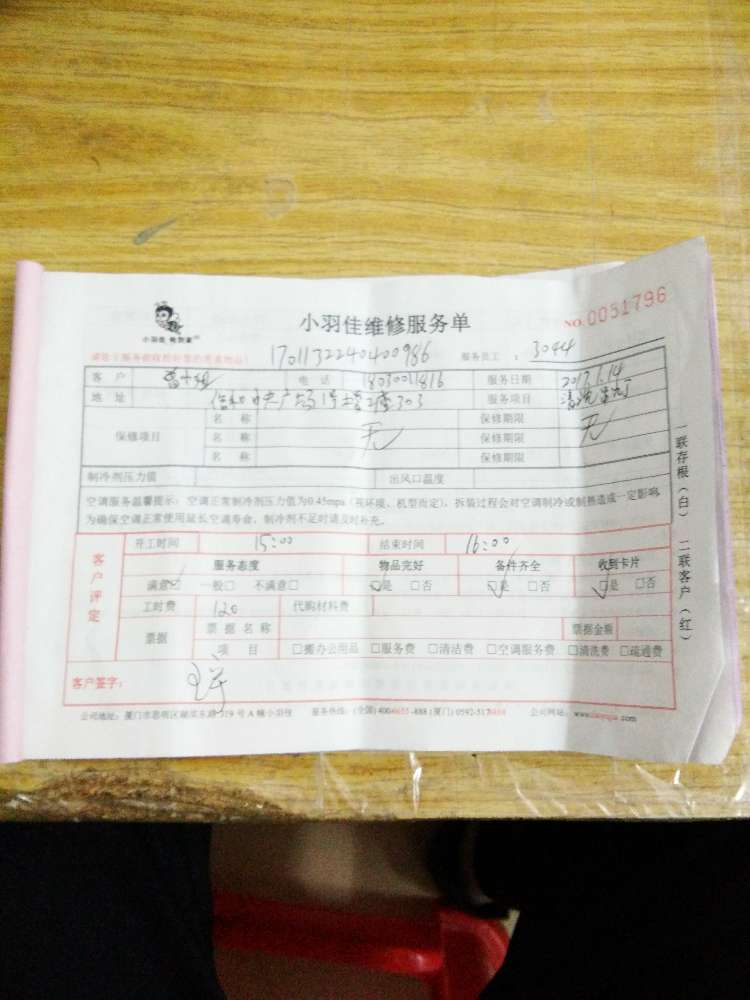 小羽佳维修服务单
NO.0051796
小羽佳 帮到家
1701132240400986 服务员工：3044
客户 电话 18030011816 服务日期 2017.1.14
地址 中央广场1号 303 服务项目 清洗
保修项目 名称 无 保修期限 无
名称 保修期限
名称 保修期限
制冷剂压力值 出风口温度
空调服务温馨提示：空调正常制冷剂压力值为0.45mpa（视环境、机型而定），拆装过程会对空调制冷或制热造成一定影响
为确保空调正常使用延长空调寿命，制冷剂不足时请及时补充。
客户评定
开工时间 15:00 结束时间 16:00
服务态度 物品完好 备件齐全 收到卡片
满意☑ 一般□ 不满意□ ☑是 □否 ☑是 □否 ☑是 □否
工时费 120 代购材料费
票据 票据名称 票据金额
项目 □搬办公用品 □服务费 □清洁费 □空调服务费 □清洗费 □疏通费
客户签字：
公司地址：厦门市思明区 319号A幢小羽佳 服务热线：(全国)400-6655-888 (厦门)0592-517 公司网址：www. .com
一联存根（白） 二联客户（红）